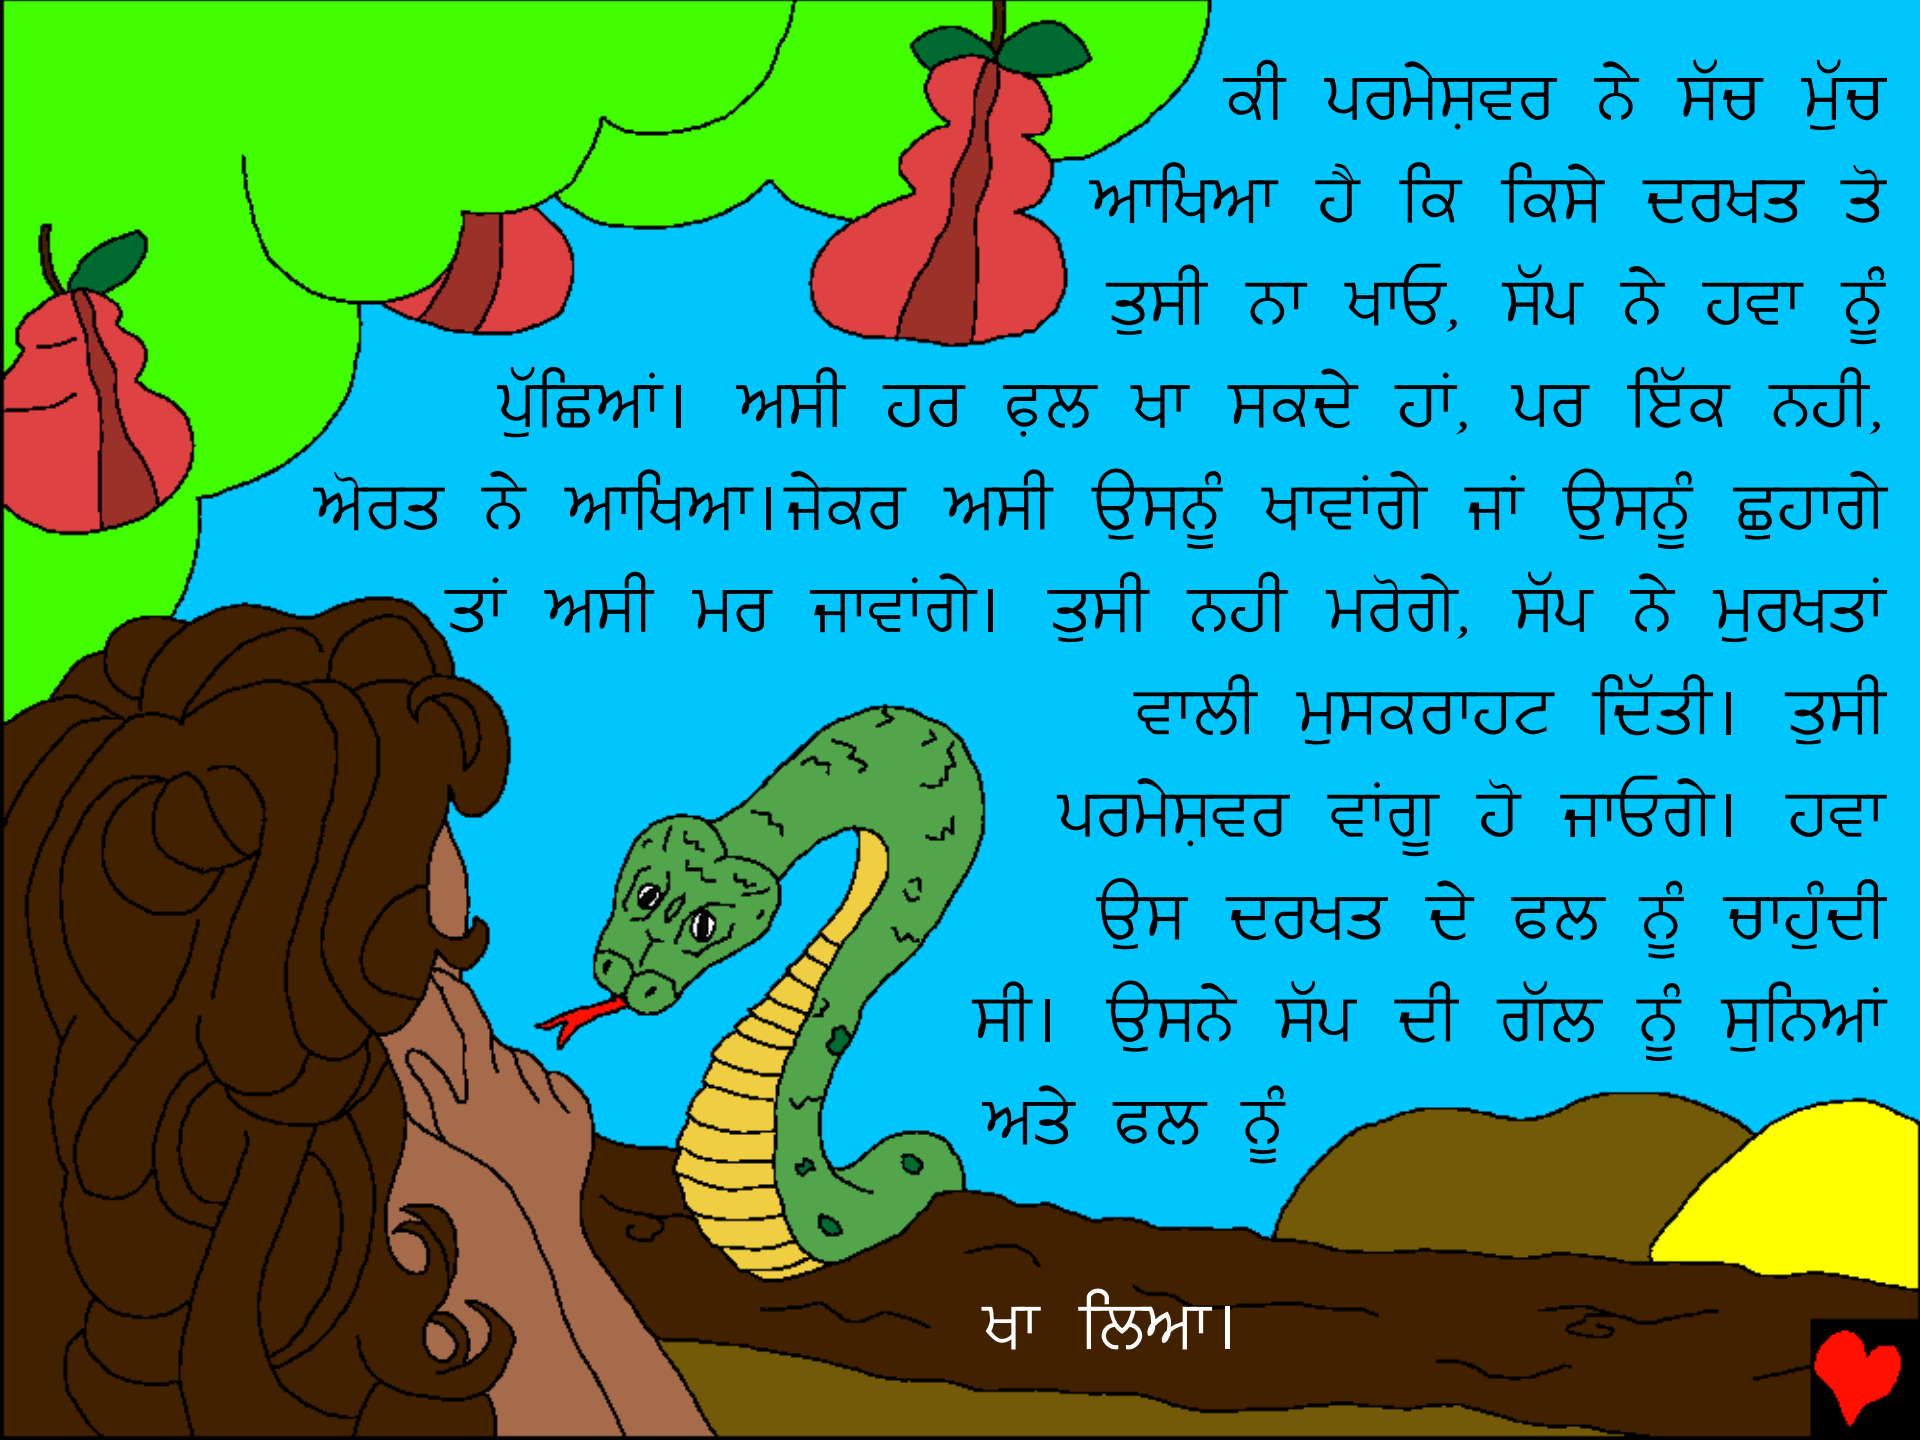 ਕੀ ਪਰਮੇਸ਼ਵਰ ਨੇ ਸੱਚ ਮੁੱਚ
ਆਖਿਆ ਹੈ ਕਿ ਕਿਸੇ ਦਰਖਤ ਤੋ
ਤੁਸੀ ਨਾ ਖਾਓ, ਸੱਪ ਨੇ ਹਵਾ ਨੂੰ
ਪੁੱਛਿਆਂ। ਅਸੀ ਹਰ ਫ਼ਲ ਖਾ ਸਕਦੇ ਹਾਂ, ਪਰ ਇੱਕ ਨਹੀ,
ਅੋਰਤ ਨੇ ਆਖਿਆ।ਜੇਕਰ ਅਸੀ ਉਸਨੂੰ ਖਾਵਾਂਗੇ ਜਾਂ ਉਸਨੂੰ ਛੁਹਾਗੇ
ਤਾਂ ਅਸੀ ਮਰ ਜਾਵਾਂਗੇ। ਤੁਸੀ ਨਹੀ ਮਰੋਗੇ, ਸੱਪ ਨੇ ਮੁਰਖਤਾਂ
ਵਾਲੀ ਮੁਸਕਰਾਹਟ ਦਿੱਤੀ। ਤੁਸੀ
ਪਰਮੇਸ਼ਵਰ ਵਾਂਗੂ ਹੋ ਜਾਓਗੇ। ਹਵਾ
ਉਸ ਦਰਖਤ ਦੇ ਫਲ ਨੂੰ ਚਾਹੁੰਦੀ
ਸੀ। ਉਸਨੇ ਸੱਪ ਦੀ ਗੱਲ ਨੂੰ ਸੁਨਿਆਂ
ਅਤੇ ਫਲ ਨੂੰ
ਖਾ ਲਿਆ।